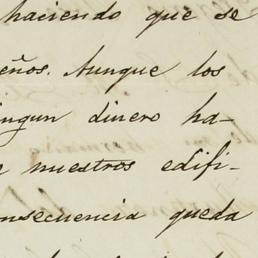 haciendo que se
eños. Aunque los
ingun dinero ha-
nuestros edifi-
onsecuencia queda